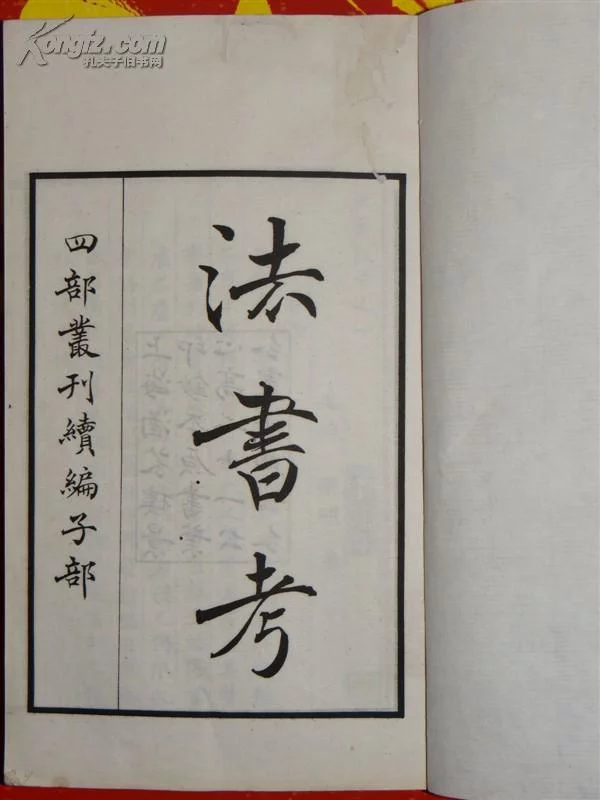 Kongfz.com
孔夫子旧书网
法書考
四部叢刊續編子部